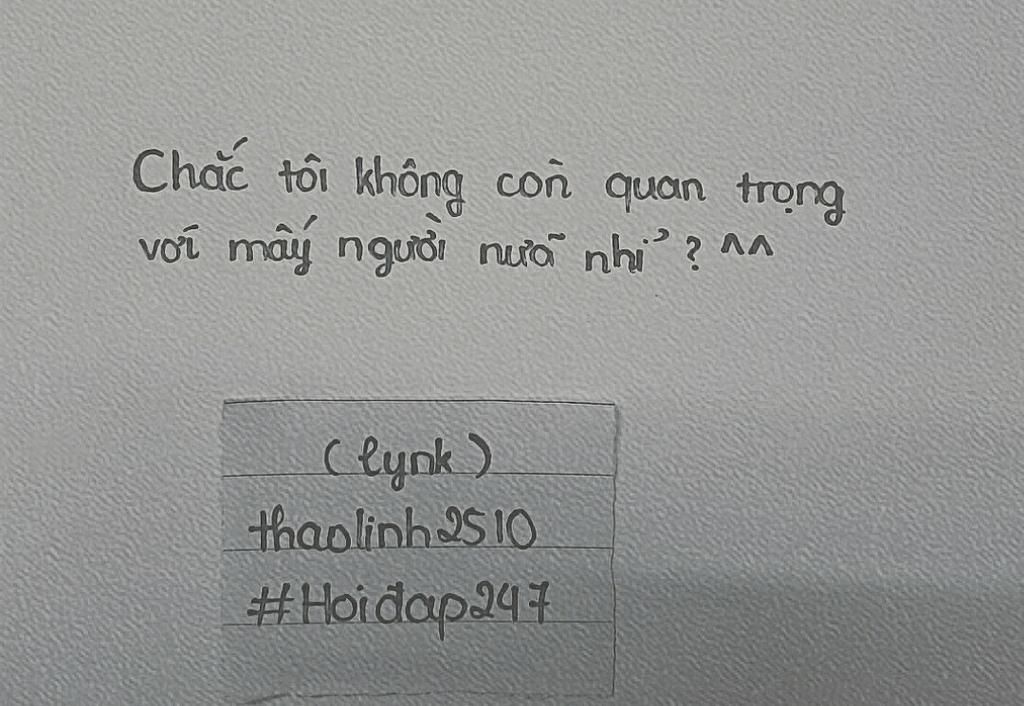 Chắc tôi không còn quan trọng
với mấy người nữa nhỉ? ^^
(lynk)
thaolinh2510
#Hoiđap247